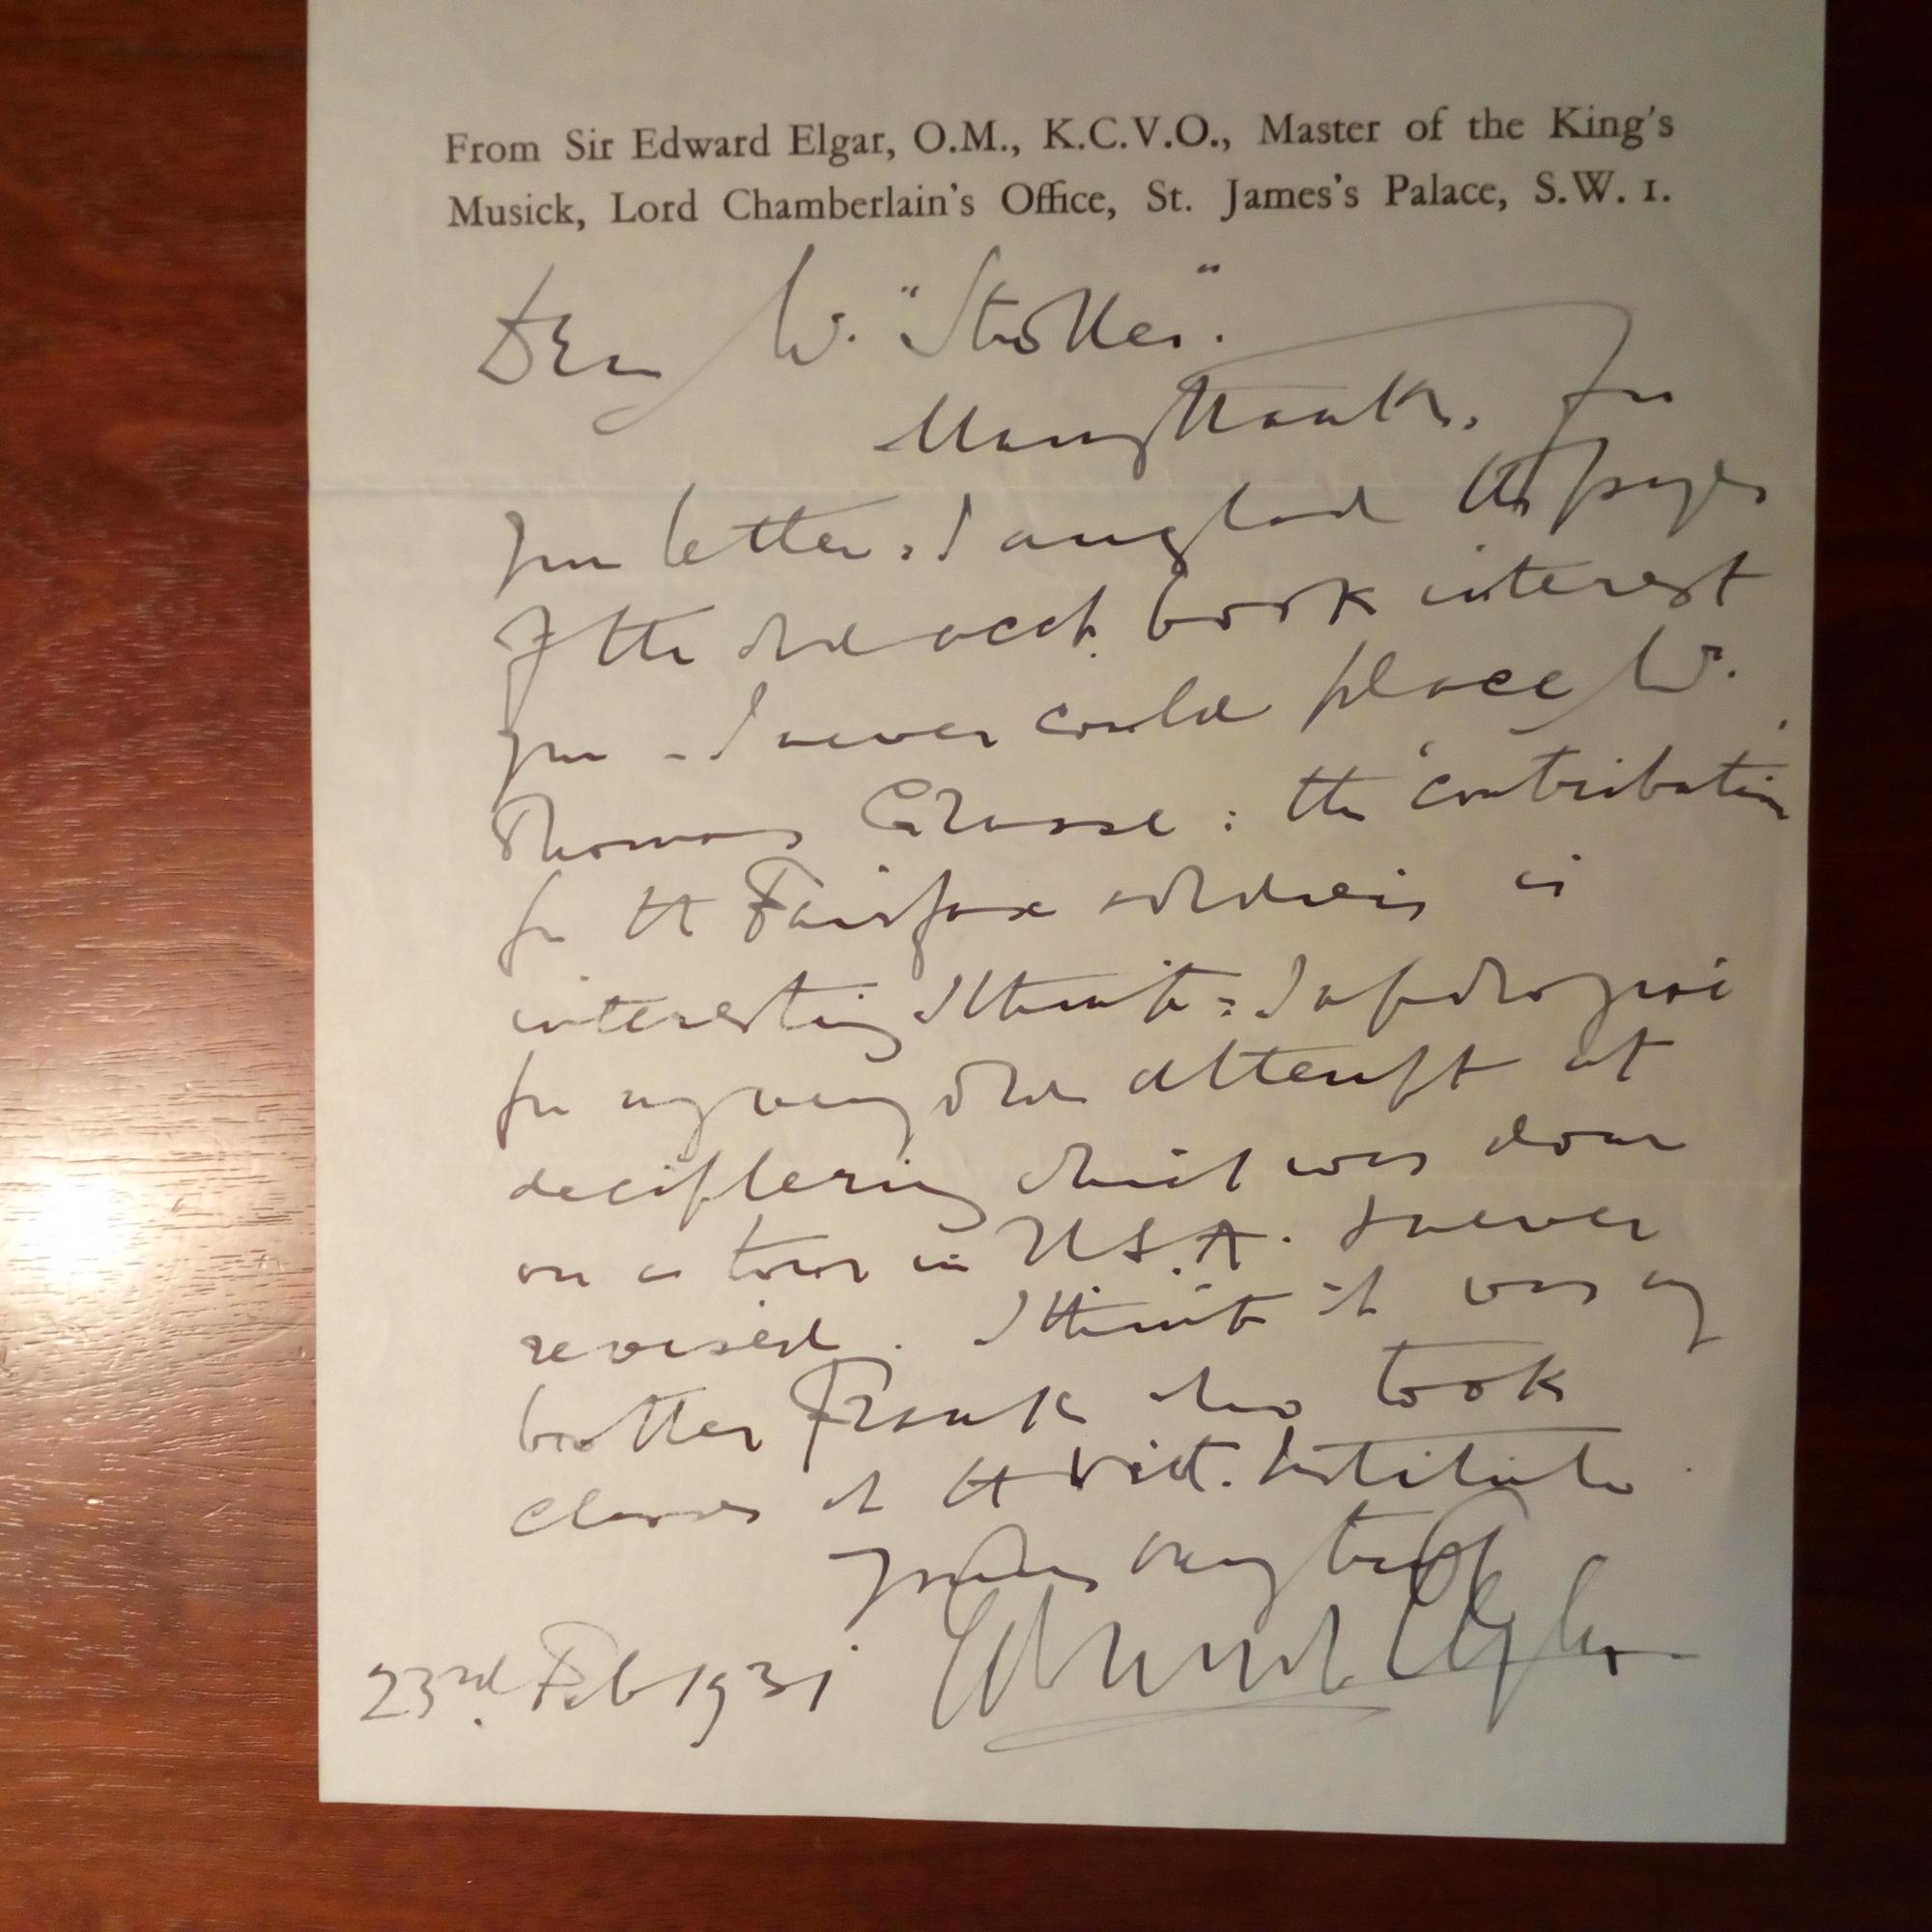 From Sir Edward Elgar, O.M., K.C.V.O., Master of the King's
Musick, Lord Chamberlain's Office, St. James's Palace, S.W. 1.
Dear Mr. "Stroller".
Many thanks for
your letter: I am glad the pages
of the old acct. book interest
you – I never could place Mr.
Thomas Grasse: the 'contribution'
for the Fairfax soldiers is
interesting I think: I apologise
for my very old attempt at
deciphering which was done
on a tour in U.S.A. & never
revised. I think it was my
brother Frank who took
classes at the Vict. Institute.
Yours very truly
Edward Elgar
23rd. Feb 1931